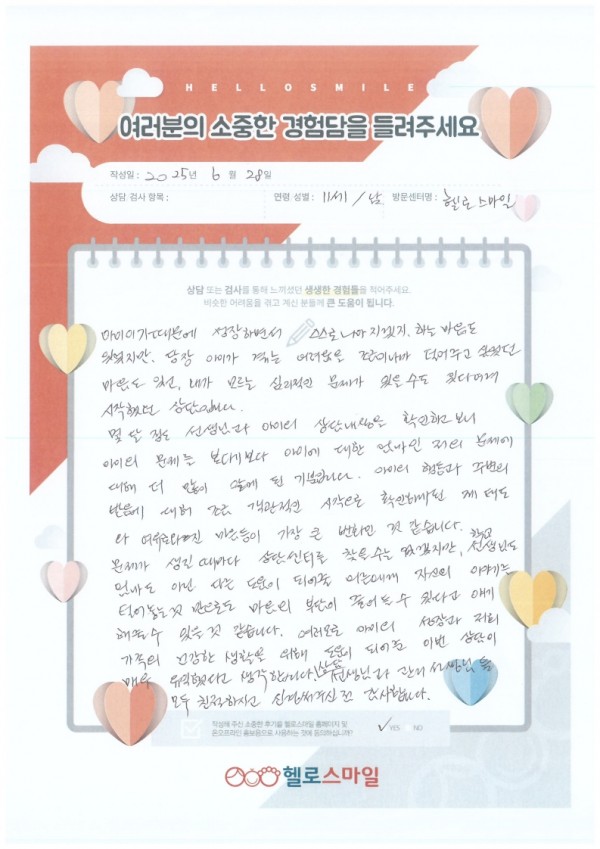 HELLOSMILE
여러분의 소중한 경험담을 들려주세요
작성일 : 2025년 6월 28일
상담 검사 항목 : 연령 성별 : 11세 / 남 방문센터명 : 헬로스마일
상담 또는 검사를 통해 느끼셨던 생생한 경험들을 적어주세요.
비슷한 어려움을 겪고 계신 분들께 큰 도움이 됩니다.
아이이기 때문에 성장하면서 스스로 나아지겠지, 하는 마음도
있었지만, 당장 아이가 겪는 어려움을 조금이나마 덜어주고 싶었던
마음도 있고, 내가 모르는 심리적인 문제가 있을 수도 있다 여겨
시작했던 상담입니다.
몇 달 정도 선생님과 아이의 상담내용을 확인하고 보니
아이의 문제는 보다기보다 아이에 대한 엄마인 저의 문제에
대해 더 많이 알게 된 기분입니다. 아이의 행동과 주변의
반응에 대해 조금 객관적인 시각으로 확인하게된 제 태도
와 여유로와진 마음등이 가장 큰 변화인 것 같습니다.
문제가 생긴 때마다 상담센터를 찾을 수는 없겠지만, 학교 선생님도
엄마도 아닌 다른 도움이 되어줄 어른에게 자신의 이야기를
털어놓는것 만으로도 마음의 부담이 줄어들 수 있다고 얘기
해줄 수 있을 것 같습니다. 여러모로 아이의 성장과 저희
가족의 건강한 생활을 위해 도움이 되어준 이번 상담이
매우 유익했다고 생각합니다. 상담 선생님과 관리 선생님들
모두 친절하시고 신경써주신 점 감사합니다.
작성해 주신 소중한 후기를 헬로스마일 홈페이지 및
온오프라인 홍보용으로 사용하는 것에 동의하십니까?
YES NO
헬로스마일